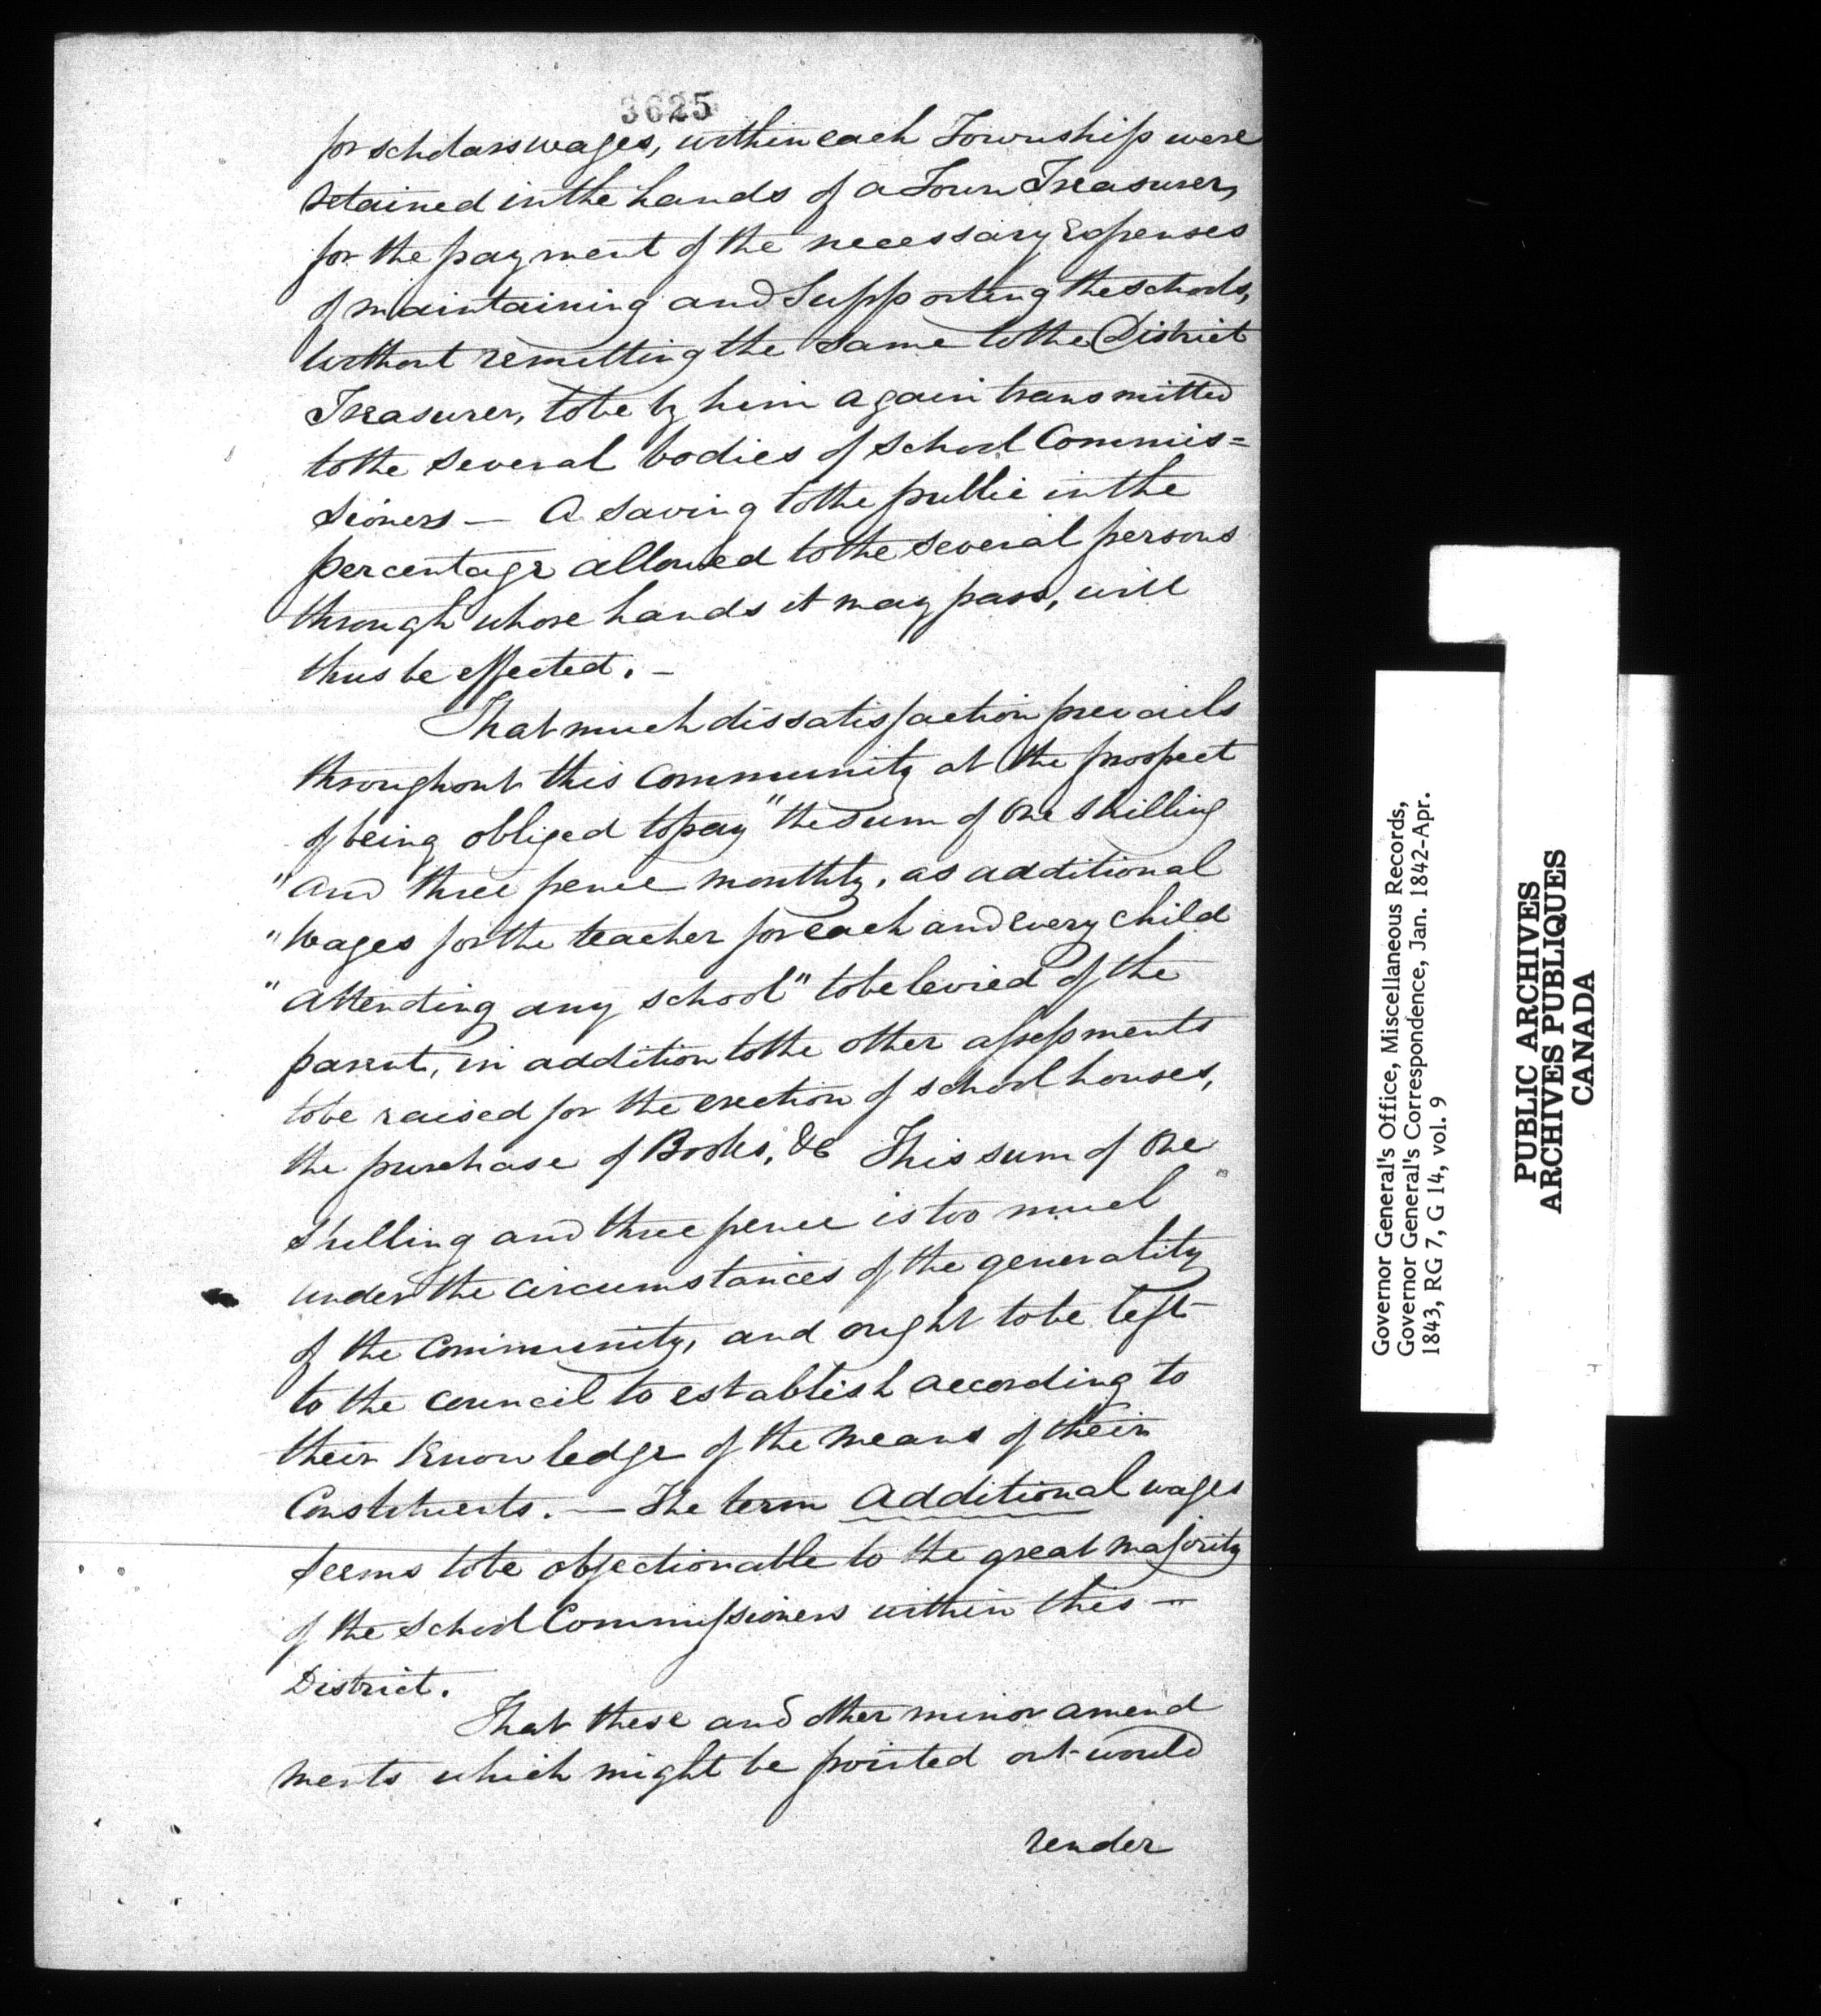 3625
for scholars wages, within each Township were
retained in the hands of a Town Treasurer,
for the payment of the necessary Expenses
of maintaining and Supporting the schools,
without remitting the same to the District
Treasurer, to be by him again transmitted
to the several bodies of School Commis=
sioners — A saving to the public in the
percentage allowed to the several persons
through whose hands it may pass, will
thus be effected. —
That much dissatisfaction prevails
throughout this community at the prospect
of being obliged to pay "the sum of one shilling
"and three pence monthly, as additional
"Wages for the teacher for each and every child
"attending any school" to be levied of the
parent, in addition to the other assessments
to be raised for the erection of school houses,
the purchase of Books, &c This sum of One
shilling and three pence is too much
under the circumstances of the generality
of the community, and ought to be left
to the council to establish according to
their knowledge of the means of their
Constituents. — The term additional wages
seems to be objectionable to the great majority
of the School Commissioners within this —
District.
That these and other minor amend
ments which might be pointed out would
render
Governor General's Office, Miscellaneous Records,
Governor General's Correspondence, Jan. 1842-Apr.
1843, RG 7, G 14, vol. 9
PUBLIC ARCHIVES
ARCHIVES PUBLIQUES
CANADA